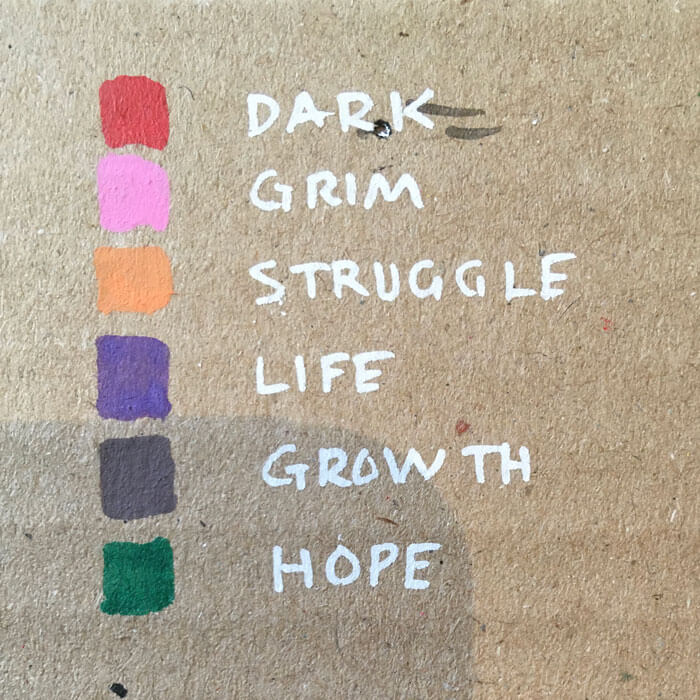 DARK
GRIM
STRUGGLE
LIFE
GROWTH
HOPE